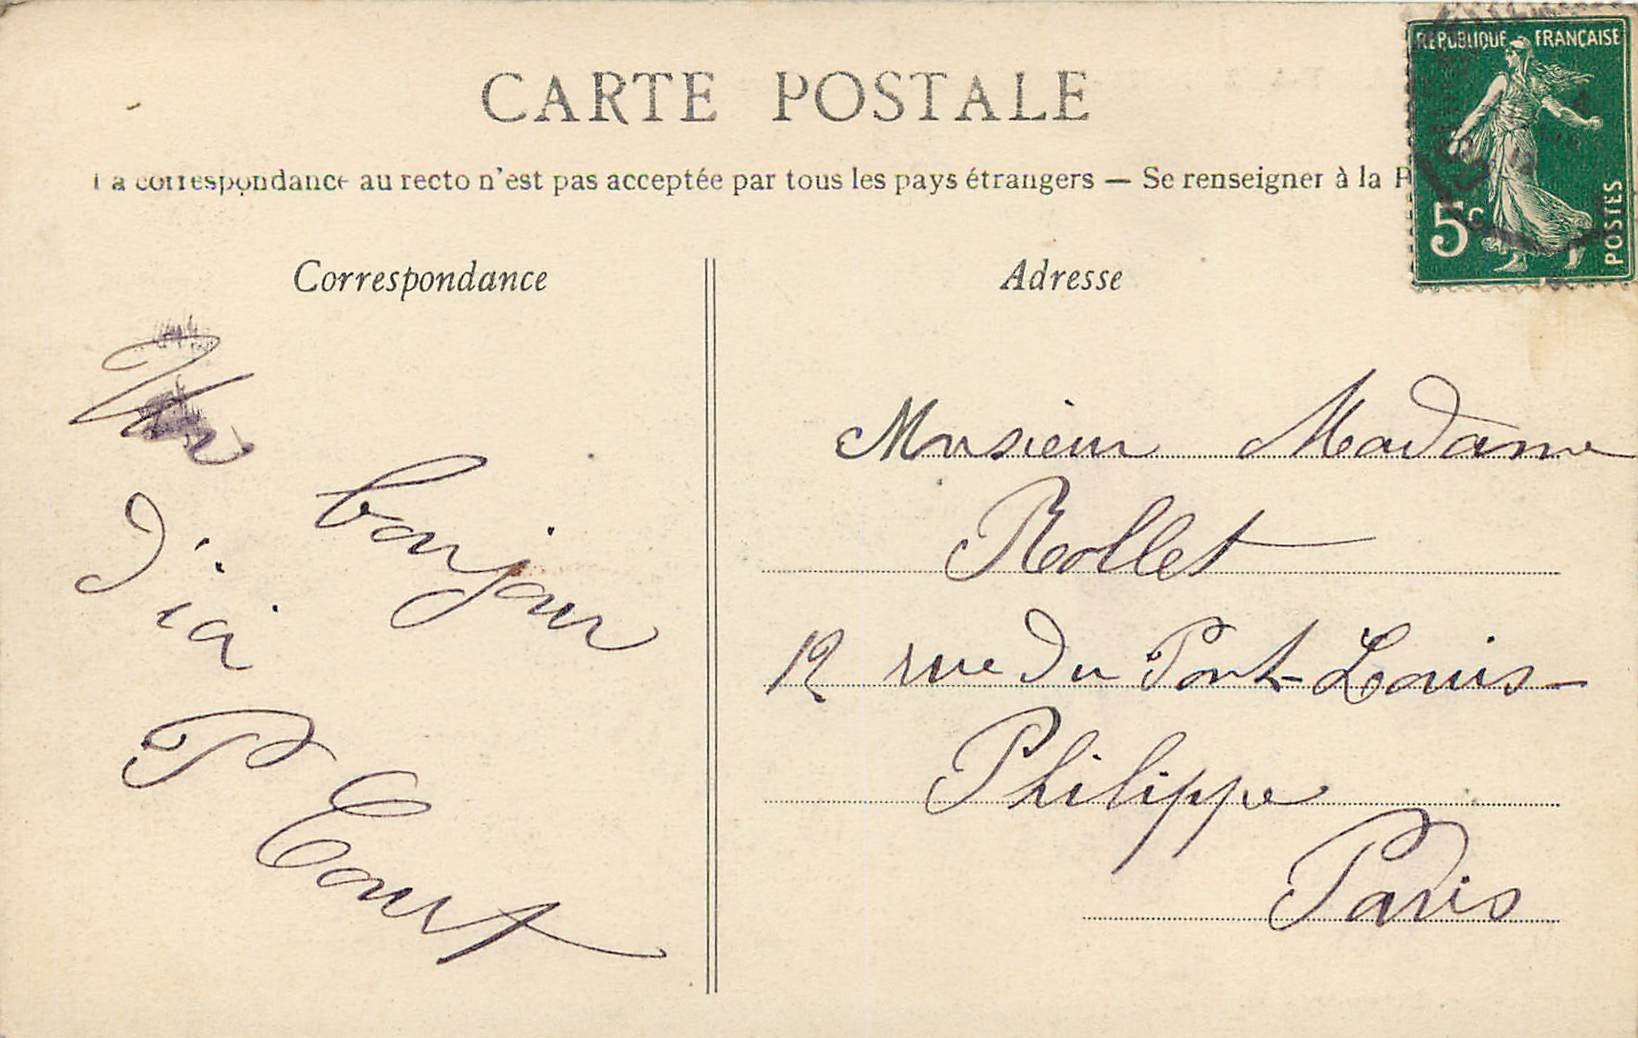 CARTE POSTALE
La correspondance au recto n'est pas acceptée par tous les pays étrangers — Se renseigner à la P
Correspondance
Un
bonjour
d'ici
P Court
Adresse
Monsieur Madame
Rollet
12 rue du Pont-Louis-
Philippe
Paris
REPUBLIQUE FRANÇAISE
5c
POSTES